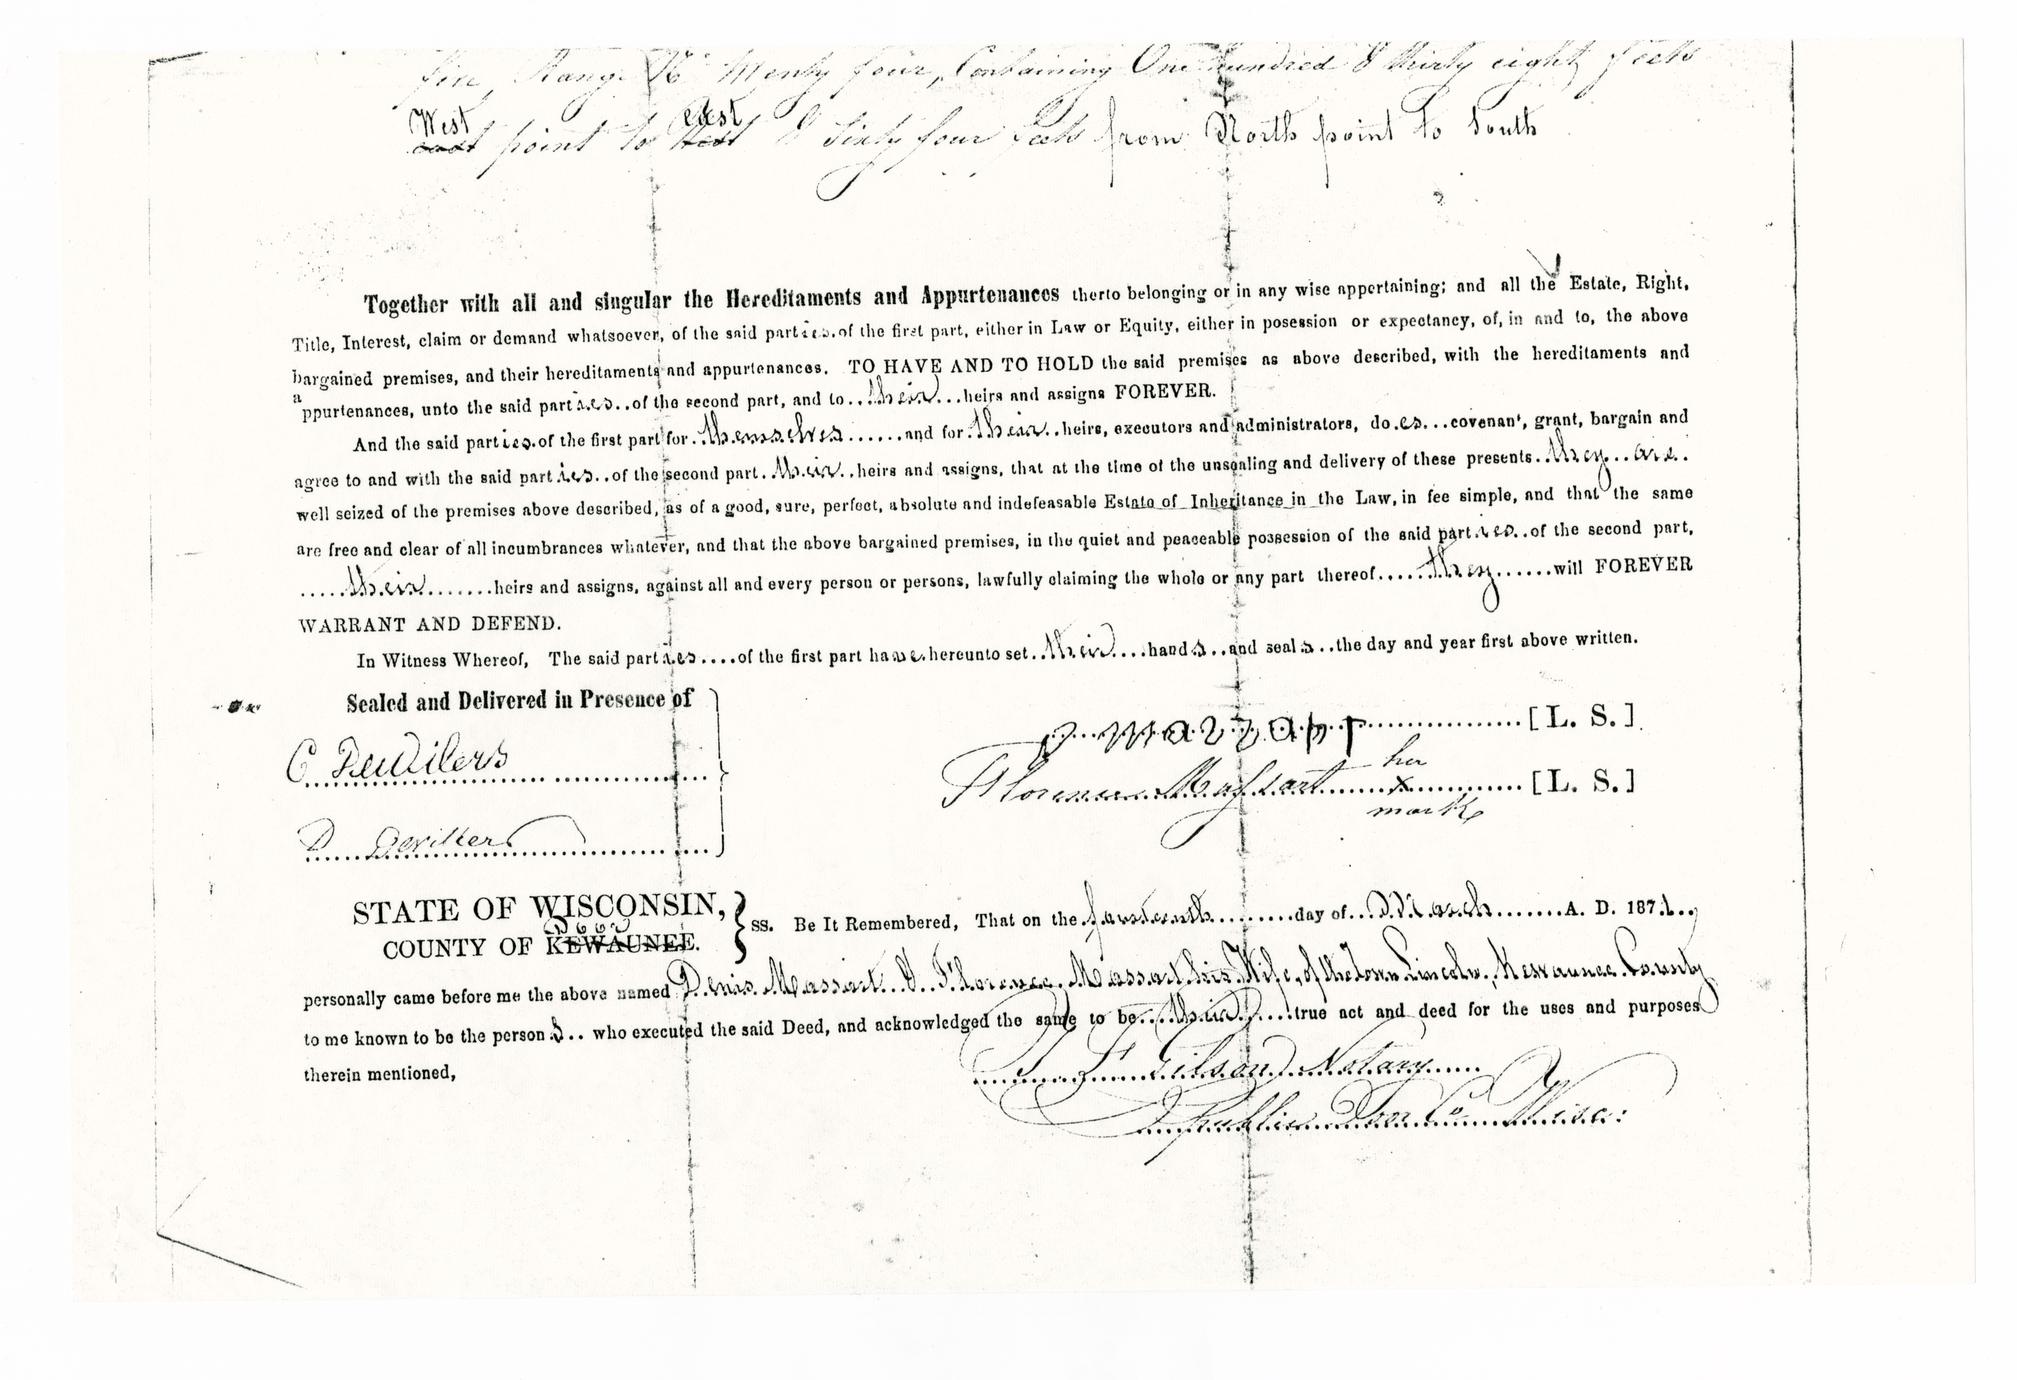 five, Range No twenty four, Containing One hundred & thirty eight feets
West east
east point to West & Sixty four feets from North point to South
Together with all and singular the Hereditaments and Appurtenances therto belonging or in any wise appertaining; and all the Estate, Right,
Title, Interest, claim or demand whatsoever, of the said parties of the first part, either in Law or Equity, either in posession or expectancy, of, in and to, the above
bargained premises, and their hereditaments and appurtenances. TO HAVE AND TO HOLD the said premises as above described, with the hereditaments and
appurtenances, unto the said parties..of the second part, and to..their...heirs and assigns FOREVER.
And the said parties.of the first part for.themselves......and for their..heirs, executors and administrators, do.es...covenant, grant, bargain and
agree to and with the said parties..of the second part.their..heirs and assigns, that at the time of the unsealing and delivery of these presents..they..are.
well seized of the premises above described, as of a good, sure, perfect, absolute and indefeasable Estate of Inheritance in the Law, in fee simple, and that the same
are free and clear of all incumbrances whatever, and that the above bargained premises, in the quiet and peaceable possession of the said parties..of the second part,
.....their.......heirs and assigns, against all and every person or persons, lawfully claiming the whole or any part thereof.....they......will FOREVER
WARRANT AND DEFEND.
In Witness Whereof, The said parties....of the first part have hereunto set..their....hands..and seals..the day and year first above written.
Sealed and Delivered in Presence of
D Massart [L. S.]
C Dewilers
Florence Massart her x mark [L. S.]
D Deviller
STATE OF WISCONSIN, ss. Be It Remembered, That on the fourteenth.......day of..March.......A. D. 1871..
Door
COUNTY OF KEWAUNEE.
personally came before me the above named Denis Massart & Florence Massart his Wife, of the Town Lincoln, Kewaunee County
to me known to be the person s.. who executed the said Deed, and acknowledged the same to be...their....true act and deed for the uses and purposes
therein mentioned,
Gilson Notary
Public Door Co Wisc: